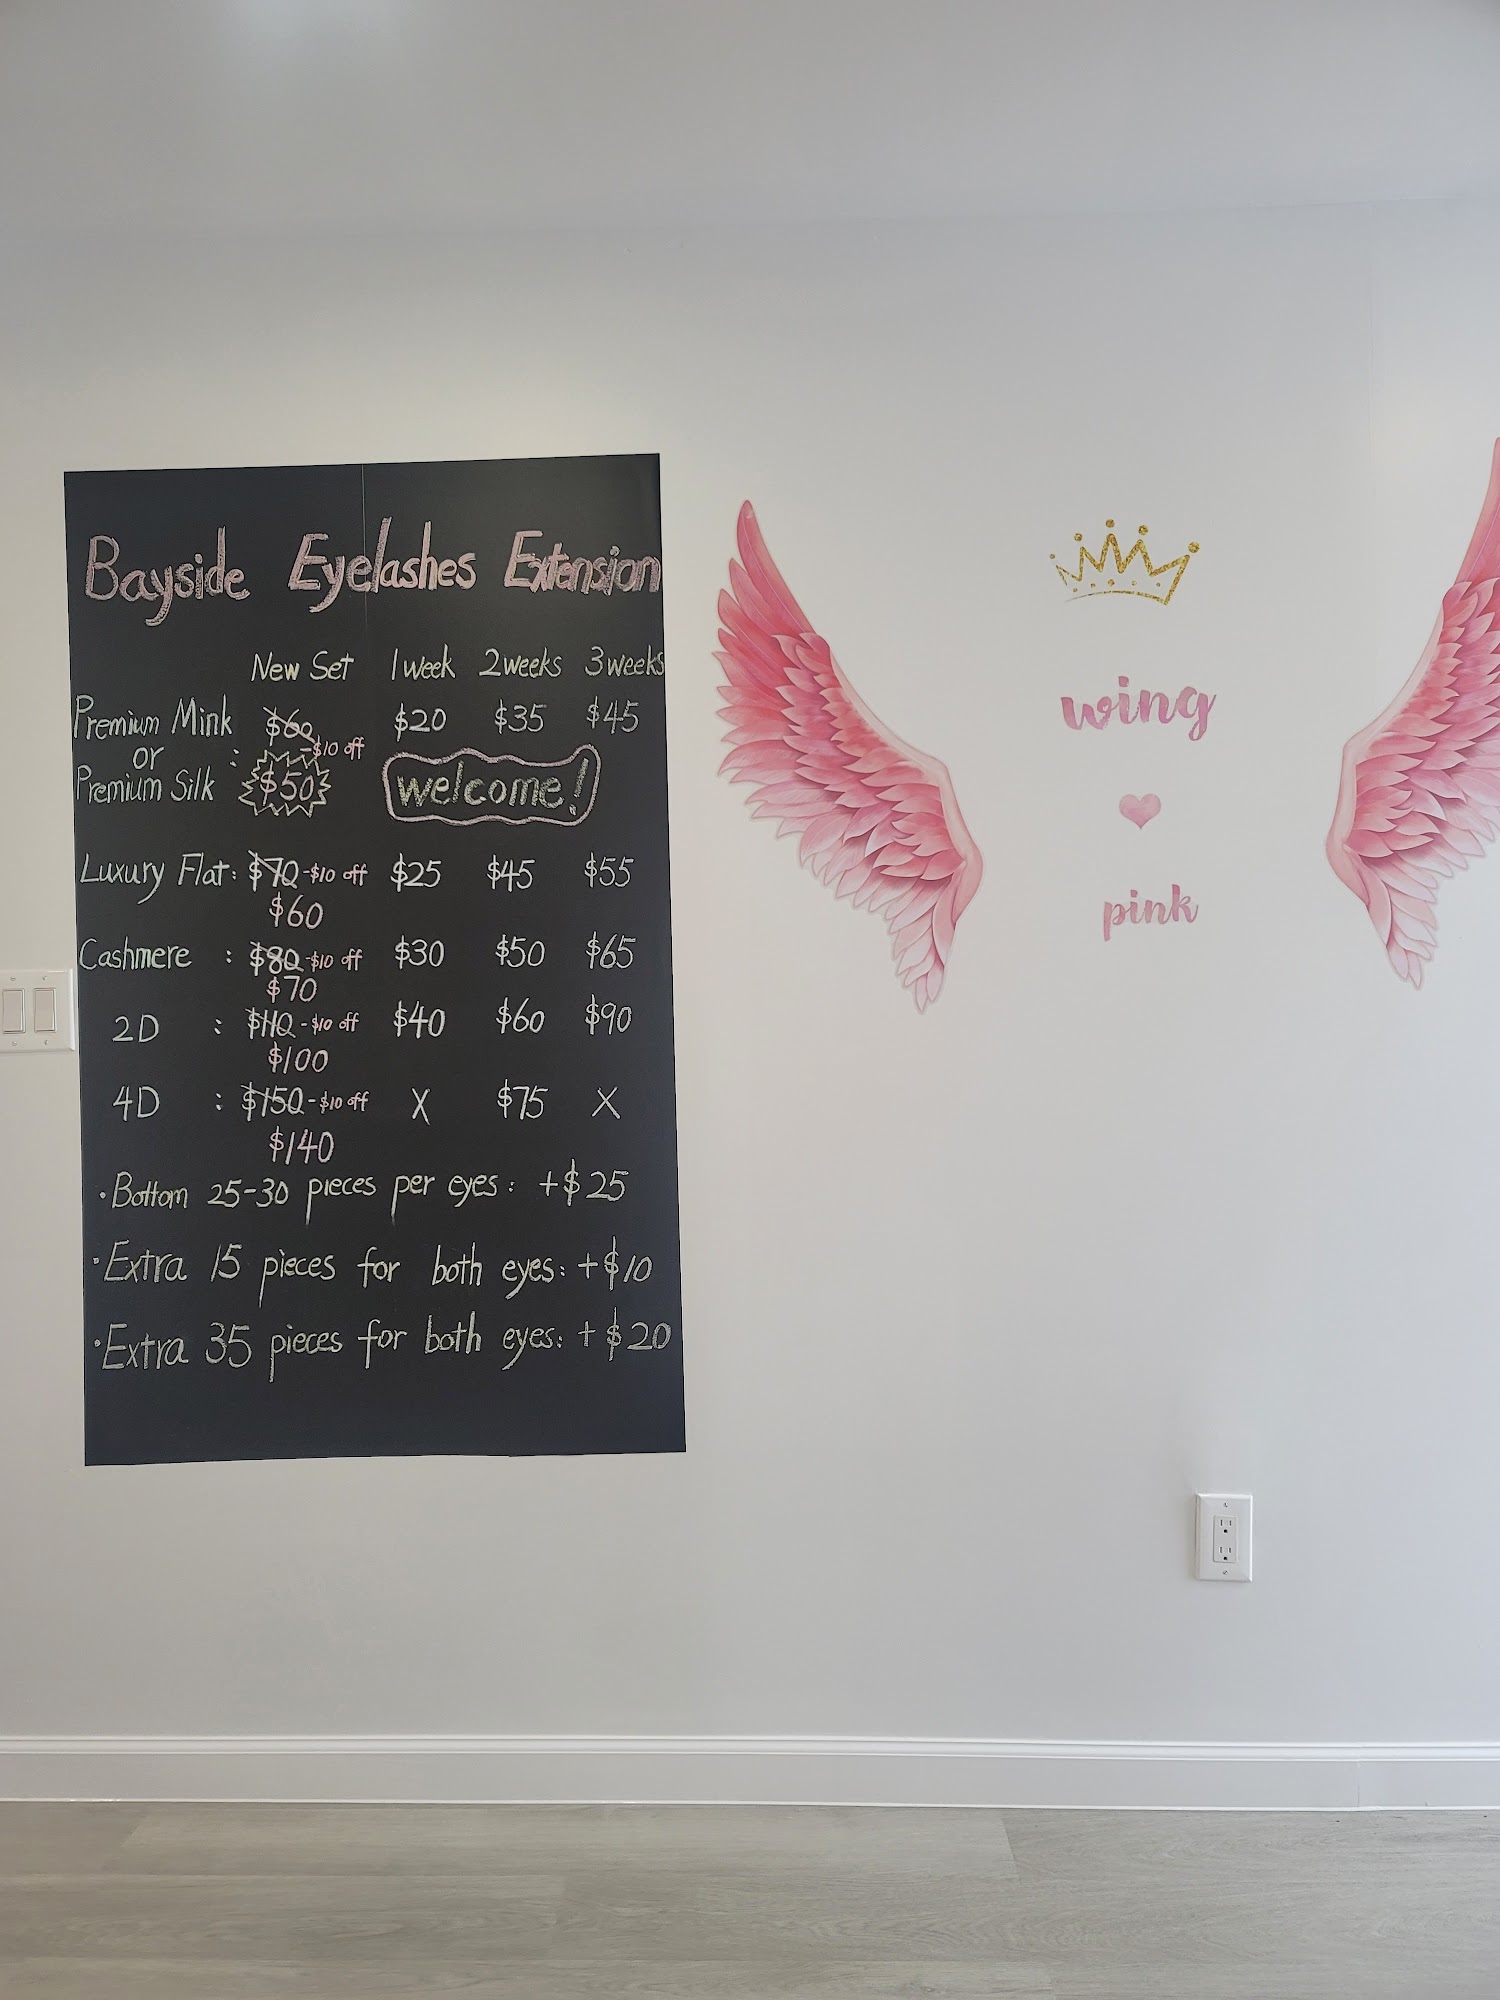 Bayside Eyelashes Extension
New Set 1week 2weeks 3weeks
Premium Mink $60 $20 $35 $45
or : -$10 off
Premium Silk $50 welcome!
Luxury Flat: $70 -$10 off $25 $45 $55
$60
Cashmere : $80 -$10 off $30 $50 $65
$70
2D : $110 -$10 off $40 $60 $90
$100
4D : $150 -$10 off X $75 X
$140
· Bottom 25-30 pieces per eyes: +$25
· Extra 15 pieces for both eyes: +$10
· Extra 35 pieces for both eyes: +$20
wing
pink